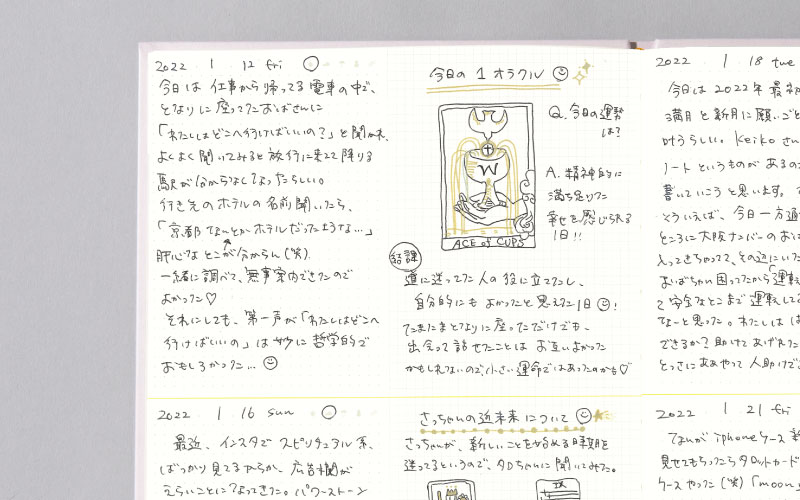 2022 1 12 fri
今日は 仕事から帰ってる電車の中で、
となりに座ってたおばさんに
「わたしはどこへ行けばいいの？」と聞かれ、
よくよく聞いてみると旅行に来てて降りる
駅が分からなくなったらしい。
行き先のホテルの名前聞いたら、
「京都なんとかホテルだったような…」
肝心なとこが分からん(笑)
一緒に調べて、無事案内できたので
よかった♡
それにしても、第一声が「わたしはどこへ
行けばいいの」は妙に哲学的で
おもしろかった…
今日の1オラクル
Q. 今日の運勢
は？
A. 精神的に
満ち足りた
幸せを感じられる
1日!!
W
ACE of CUPS
結課
道に迷ってた人の役に立てたし、
自分的にもよかったと思えた1日!
たまたまとなりに座っただけでも、
出会って話せたことはお互いよかった
かもしれないので、小さい運命ではあったのかも♡
2022 1 18 tue
今日は 2022年最初
満月と新月に願いごと
叶うらしい。Keikoさん
ノートというものがあるの
書いていこうと思います。
そういえば、今日一方通
ところに大阪ナンバーのおば
入ってきちゃってて、その辺にいた
おばちゃん困ってたから「運転
て安全なとこまで運転して
なーと思った。わたしは
できるか？助けてあげれた
とっさにああやって人助けで
2022 1 16 sun
最近、インスタでスピリチュアル系、
ばっかり見てるからか、広告欄が
えらいことになってきた。パワーストーン
さっちゃんの近未来について
さっちゃんが、新しいことを始める時期を
迷ってるというので、タロちゃんに聞いてみた。
2022 1 21 fri
てなんが iphoneケース新
見せてもらったらタロットカード
ケースやった(笑)「moon